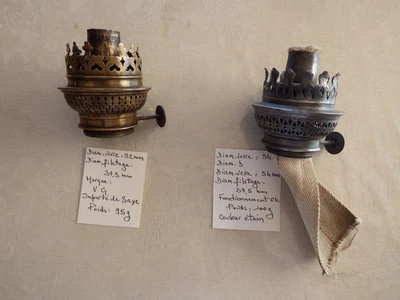 Diam. verre : 52 mm
Diam. filetage :
39,5 mm
Marque :
V G
Importé de Saxe
Poids : 95g
Diam. verre : 54
Diam. b
Diam. verre : 54 mm
Diam. filetage :
39,5 mm
Fonctionnement Ok
Poids : 100g
Couleur étain